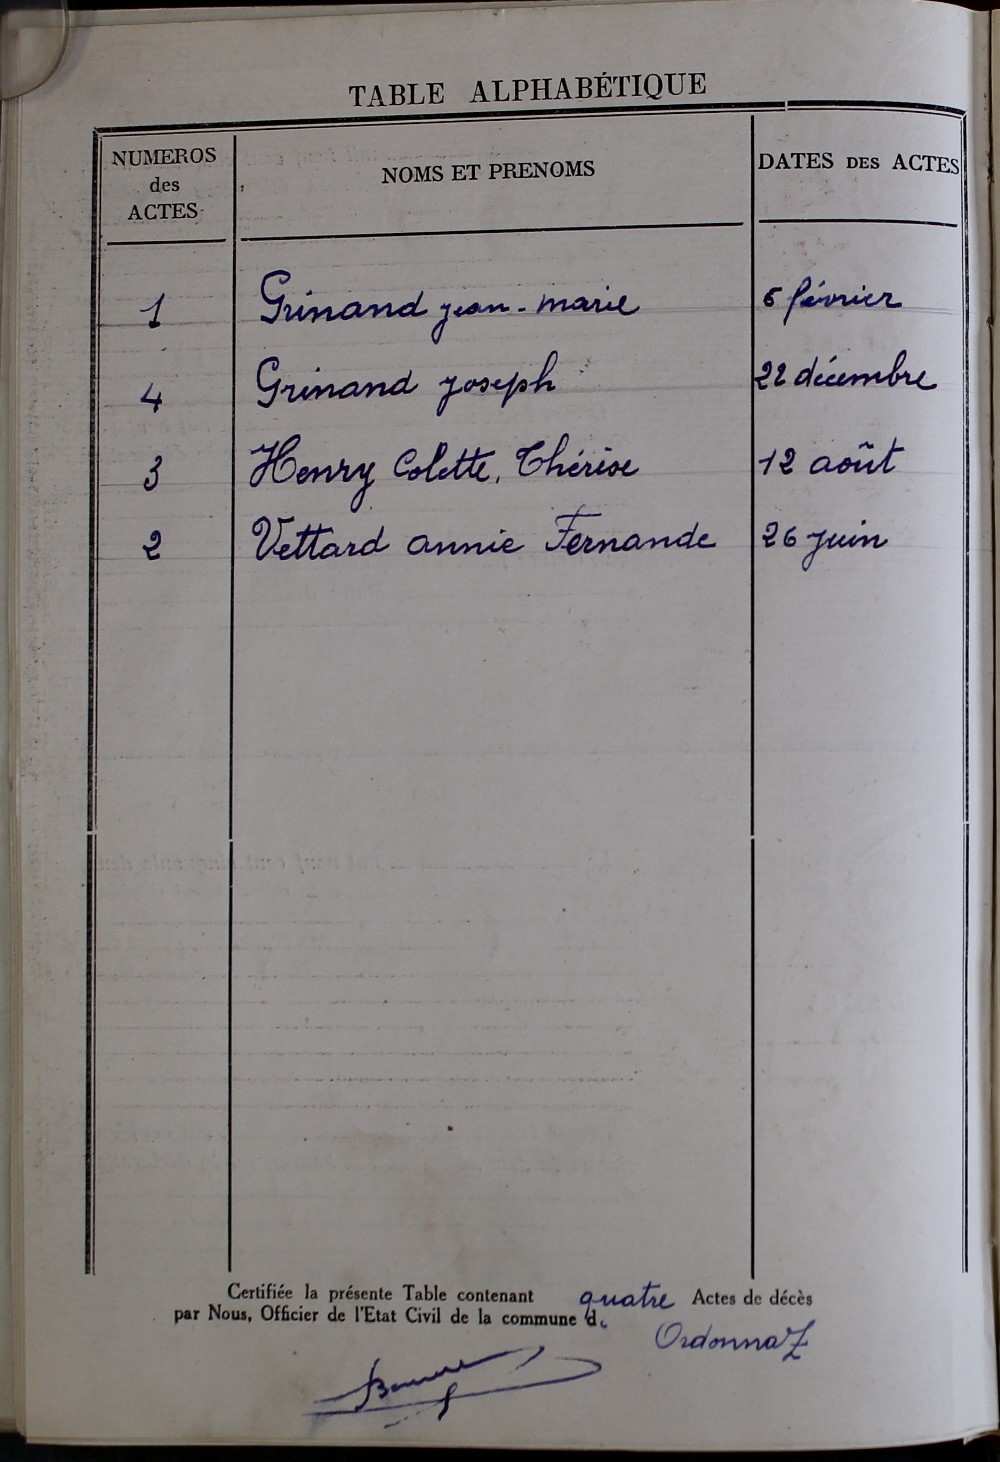 TABLE ALPHABÉTIQUE
NUMEROS des ACTES NOMS ET PRENOMS DATES DES ACTES
1 Grinand jean-marie 6 février
4 Grinand joseph 22 décembre
3 Henry Colette, Thérèse 12 août
2 Vettard annie Fernande 26 juin
Certifiée la présente Table contenant quatre Actes de décès
par Nous, Officier de l'Etat Civil de la commune d.
Ordonnaz